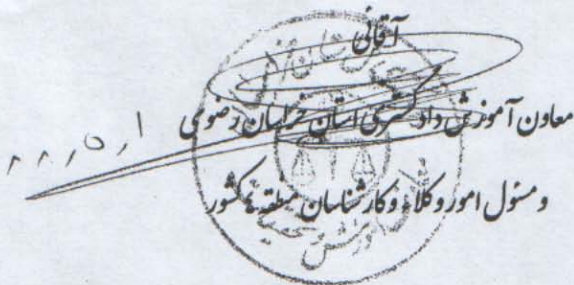 آقائی
معاون آموزش دادگستری استان خراسان رضوی
۸۸٫۵٫۱
و مسئول امور وکلاء و کارشناسان منطقه ۴ کشور